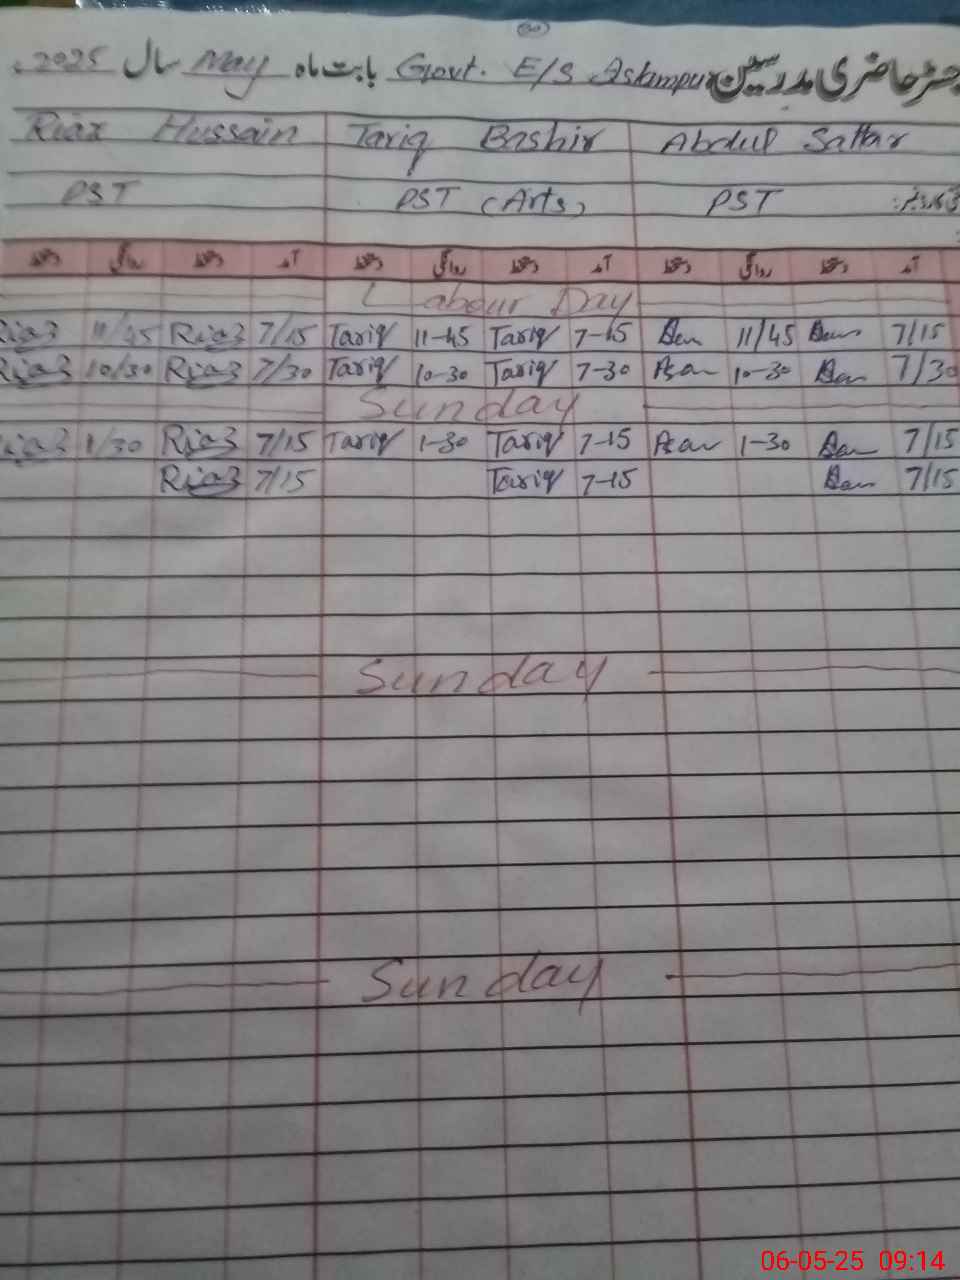 30
رجسٹر حاضری مدرسین Govt. E/S Aslampur بابت ماہ May سال 2025
Riaz Hussain Tariq Bashir Abdul Sattar
PST PST (Arts) PST
دستخط روانگی دستخط آمد دستخط روانگی دستخط آمد دستخط روانگی دستخط آمد
Labour Day
Riaz 11/45 Riaz 7/15 Tariq 11-45 Tariq 7-15 11/45 7/15
Riaz 10/30 Riaz 7/30 Tariq 10-30 Tariq 7-30 10-30 7/30
Sunday
Riaz 1/30 Riaz 7/15 Tariq 1-30 Tariq 7-15 1-30 7/15
Riaz 7/15 Tariq 7-15 7/15
Sunday
Sunday
06-05-25 09:14